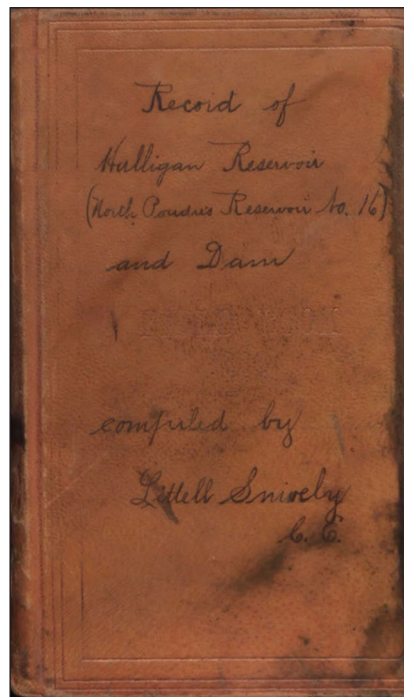 Record of
Hulligan Reservoir
(North Poudre Reservoir No. 16)
and Dam
compiled by
Littell Snively
C. E.